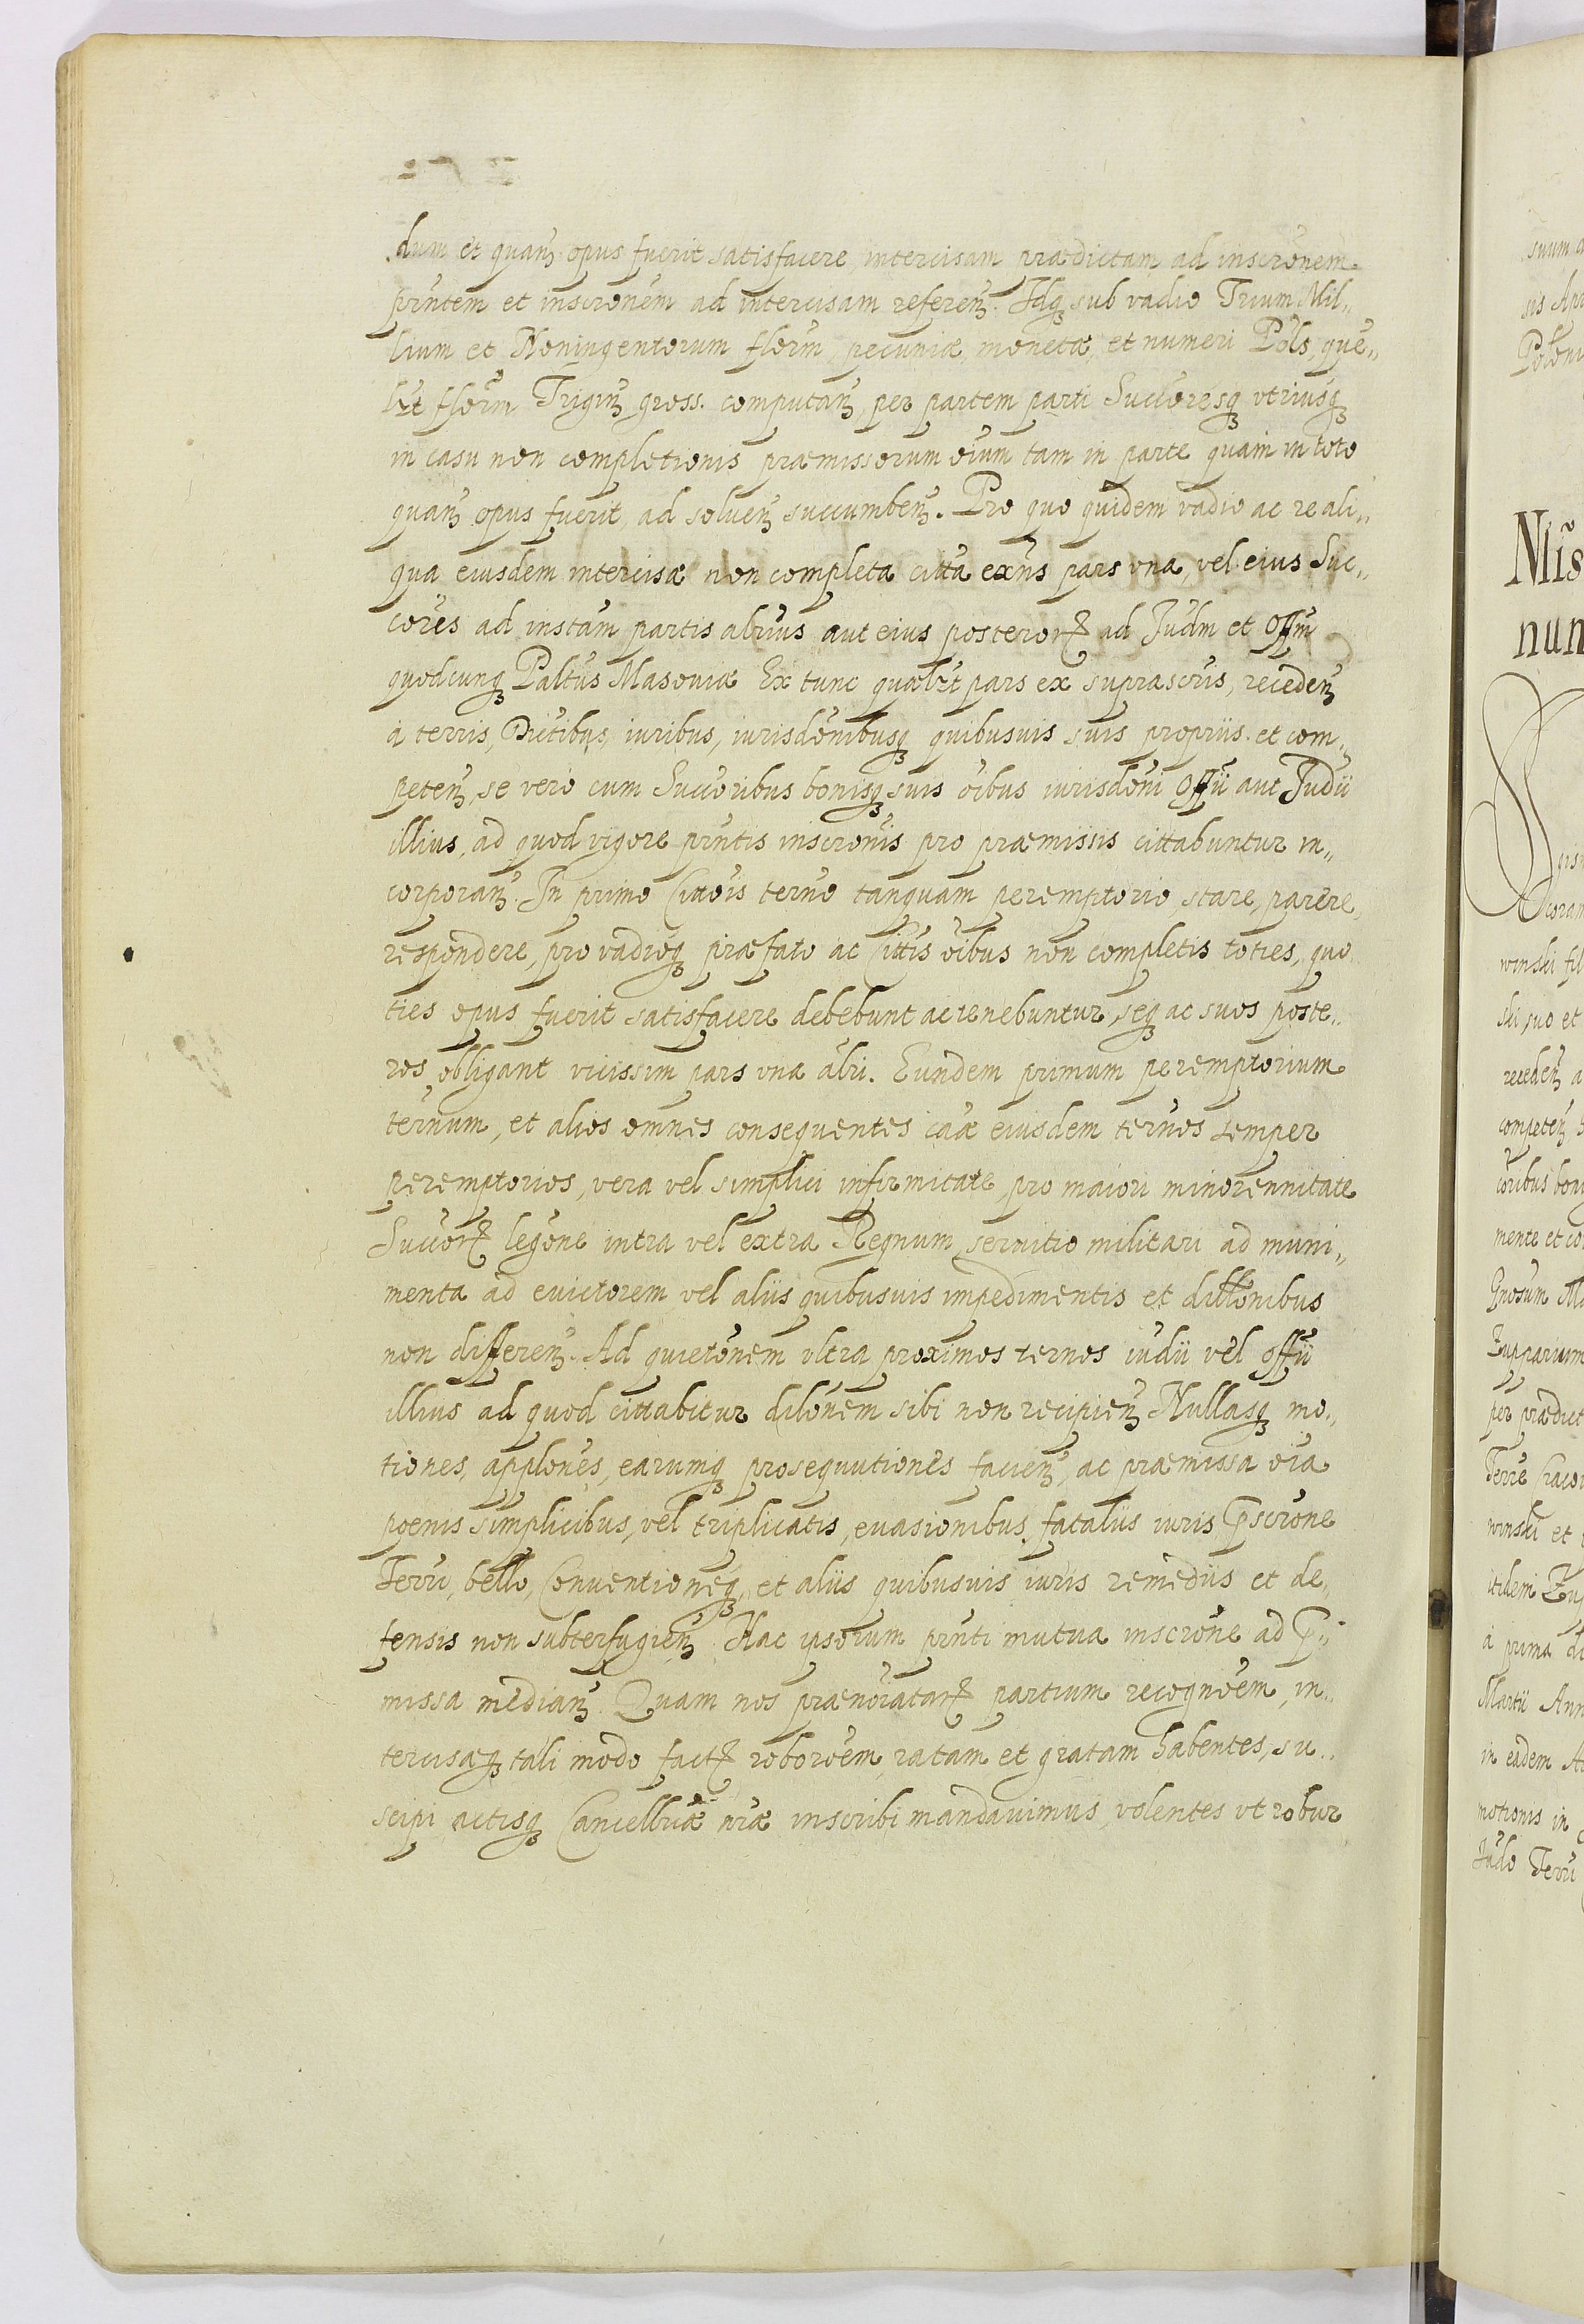 dum et quanꝫ opus fuerit satisfacere, intercisam prædictam ad inscrōnem
prn̄tem et inscrōnem ad intercisam referenꝫ. Idqꝫ sub vadio Trium Mil„
lium et Noningentorum florm̄, pecuniæ, monetæ, et numeri Pōls, que„
lꝫt florm̄ Triginꝫ gross. computanꝫ, per partem parti Succōresqꝫ vtriusqꝫ
in casu non completionis præmissorum oīum tam in parte quam in toto
quanꝫ opus fuerit, ad soluenꝫ succumbenꝫ. Pro quo quidem vadio ac re ali„
qua eiusdem intercisæ non completa citta exn̄s pars vna, vel eius Suc„
cōres ad instam̄ partis altrius aut eius posterorꝝ ad Judm̄ et Offm̄
quodcunqꝫ Paltus Masouiæ Ex tunc quælꝫt pars ex suprascris, recedenꝫ
à terris, Dictibus, iuribus, iurisdōnibusqꝫ quibusuis suis propriis et com„
petenꝫ, se vero cum Succōribus bonisqꝫ suis oībus iurisdōni Offii aut Judii
illius, ad quod vigore prn̄tis inscrōnis pro præmissis cittabuntur in„
corporanꝫ. In primo Cittōis terno tanquam peremptorio, stare, parere,
respondere, pro vadioqꝫ præfato ac Cittis oībus non completis toties, quo
ties opus fuerit satisfacere debebunt ac tenebuntur, seqꝫ ac suos poste„
ros obligant vicissim pars vna altri. Eundem primum peremptorium
ternum, et alios omnes consequentes cāæ eiusdem ternos semper
peremptorios, vera vel simplici infirmitate, pro maiori minorennitate
Succorꝝ legōne intra vel extra Regnum, seruitio militari ad muni„
menta ad euictorem vel aliis quibusuis impedimentis et dillōnibus
non differenꝫ. Ad quietōnem vltra proximos ternos iudii vel offii
illius ad quod cittabitur dilōnem sibi non recipienꝫ Nullasqꝫ mo„
tiones, applōnes, earumqꝫ prosequutiones facienꝫ, ac præmissa oīa
poenis simplicibus, vel triplicatis, euasionibus, fataliis iuris p̄scrōne
Terri, bello, Conuentioneqꝫ, et aliis quibusuis iuris remediis et de„
fensis non subterfugienꝫ Hac ipsorum prn̄ti mutua inscrōne ad p̄„
missa medianꝫ Quam nos prænoīatarꝝ partium recognōem, in„
tercisæqꝫ tali modo factꝝ roborōem, ratam et gratam habentes, su„
scipi actisqꝫ Cancellriæ nr̄æ inscribi mandauimus, volentes vt robur